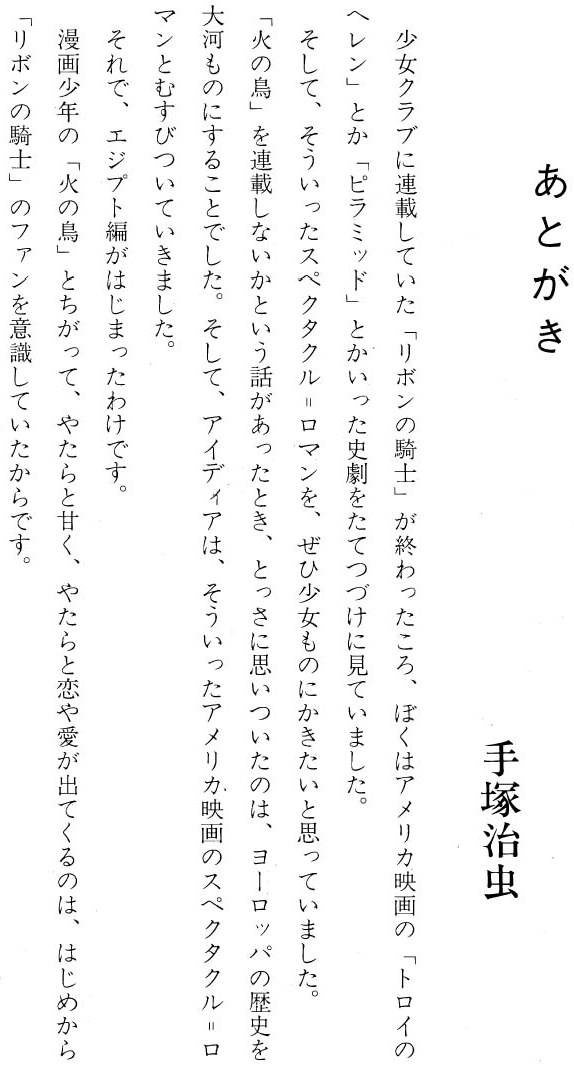 あとがき
手塚治虫
少女クラブに連載していた「リボンの騎士」が終わったころ、ぼくはアメリカ映画の「トロイの
ヘレン」とか「ピラミッド」とかいった史劇をたてつづけに見ていました。
そして、そういったスペクタクル=ロマンを、ぜひ少女ものにかきたいと思っていました。
「火の鳥」を連載しないかという話があったとき、とっさに思いついたのは、ヨーロッパの歴史を
大河ものにすることでした。そして、アイディアは、そういったアメリカ映画のスペクタクル=ロ
マンとむすびついていきました。
それで、エジプト編がはじまったわけです。
漫画少年の「火の鳥」とちがって、やたらと甘く、やたらと恋や愛が出てくるのは、はじめから
「リボンの騎士」のファンを意識していたからです。